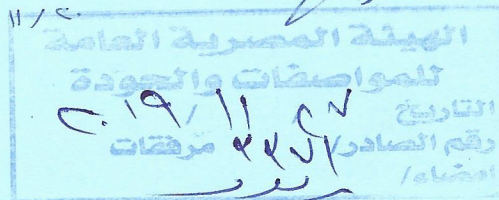 ١١/٢٠
الهيئة المصرية العامة
للمواصفات والجودة
التاريخ ٢٠١٩/١١/٢٧
رقم الصادر/ ٣٣٧٢ مرفقات
امضاء/